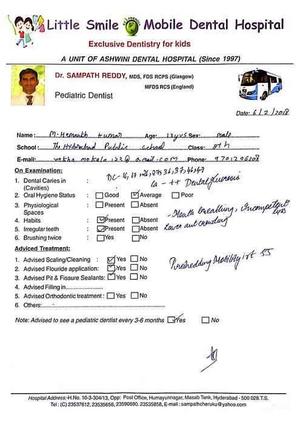 Little Smile Mobile Dental Hospital
Exclusive Dentistry for kids
A UNIT OF ASHWINI DENTAL HOSPITAL (Since 1997)
Dr. SAMPATH REDDY, MDS, FDS RCPS (Glasgow)
MFDS RCS (England)
Pediatric Dentist
Date: 6/2/2018
Name: M. Hemanth Kumar Age: 13yrs Sex: male
School: The Hyderabad Public School Class: 8th
E-mail: Phone:
On Examination:
1. Dental Caries in (Cavities)
2. Oral Hygiene Status Good Average Poor
3. Physiological Spaces Present Absent
4. Habits Present Absent
5. Irregular teeth Present Absent
6. Brushing twice Yes No
- Mouth breathing, Incompetent lips
Lower ant crowding
Advised Treatment:
1. Advised Scaling/Cleaning Yes No
2. Advised Flouride application Yes No
3. Advised Pit & Fissure Sealants Yes No
4. Advised Filling in
5. Advised Orthodontic treatment Yes No
6. Any Others
Preshedding Mobility irt 55
Note: Advised to see a pediatric dentist every 3-6 months Yes No
Hospital Address: H.No. 10-3-304/13, Opp: Post Office, Humayunnagar, Masab Tank, Hyderabad - 500 028.T.S.
Tel: (C) 23537612, 23535658, 23590680, 23535858. E-mail : sampathcheruku@yahoo.com